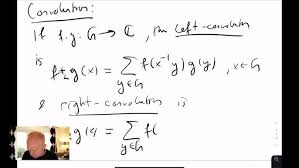 Convolution:
If f, g: G → ℂ, the left-convolution
is f*g(x) = ∑_{y∈G} f(x⁻¹y) g(y), x∈G
& right-convolution is
*g(x) = ∑_{y∈G} f(